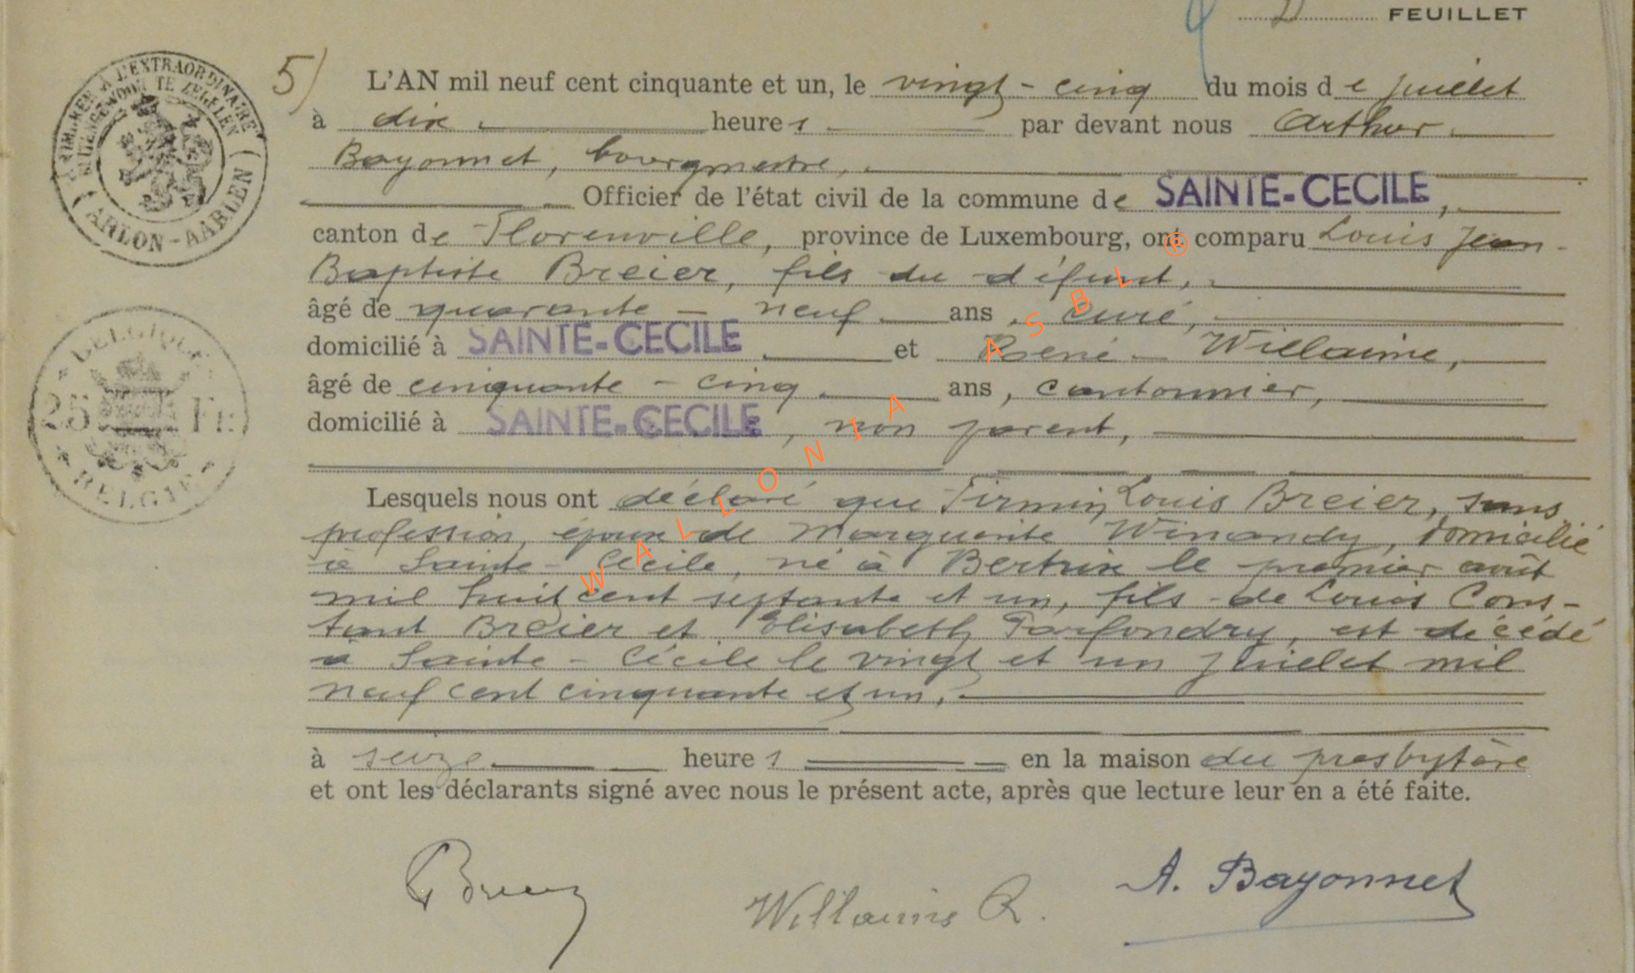 D FEUILLET
5) L'AN mil neuf cent cinquante et un, le vingt-cinq du mois de juillet
à dix heures par devant nous Arthur
Bayonnet, bourgmestre,
Officier de l'état civil de la commune de SAINTE-CECILE,
canton de Florenville, province de Luxembourg, ont comparu Louis Jean-
Baptiste Breier, fils du défunt,
âgé de quarante-neuf ans, curé,
domicilié à SAINTE-CECILE et René Willaime,
âgé de cinquante-cinq ans, cantonnier,
domicilié à SAINTE-CECILE, non parent,
Lesquels nous ont déclaré que Firmin Louis Breier, sans
profession, époux de Marguerite Winandy, domicilié
à Sainte-Cécile, né à Bertrix le premier août
mil huit cent septante et un, fils de Louis Cons-
tant Breier et Elisabeth Parfondry, est décédé
à Sainte-Cécile le vingt et un juillet mil
neuf cent cinquante et un,
à seize heures en la maison du presbytère
et ont les déclarants signé avec nous le présent acte, après que lecture leur en a été faite.
Willaime R. A. Bayonnet
TIMBRÉ A L'EXTRAORDINAIRE
BUITENGEWOON TE ZEGELEN
(ARLON-AARLEN)
BELGIQUE
25 Fr.
BELGIE
WALLONIA ASBL ®